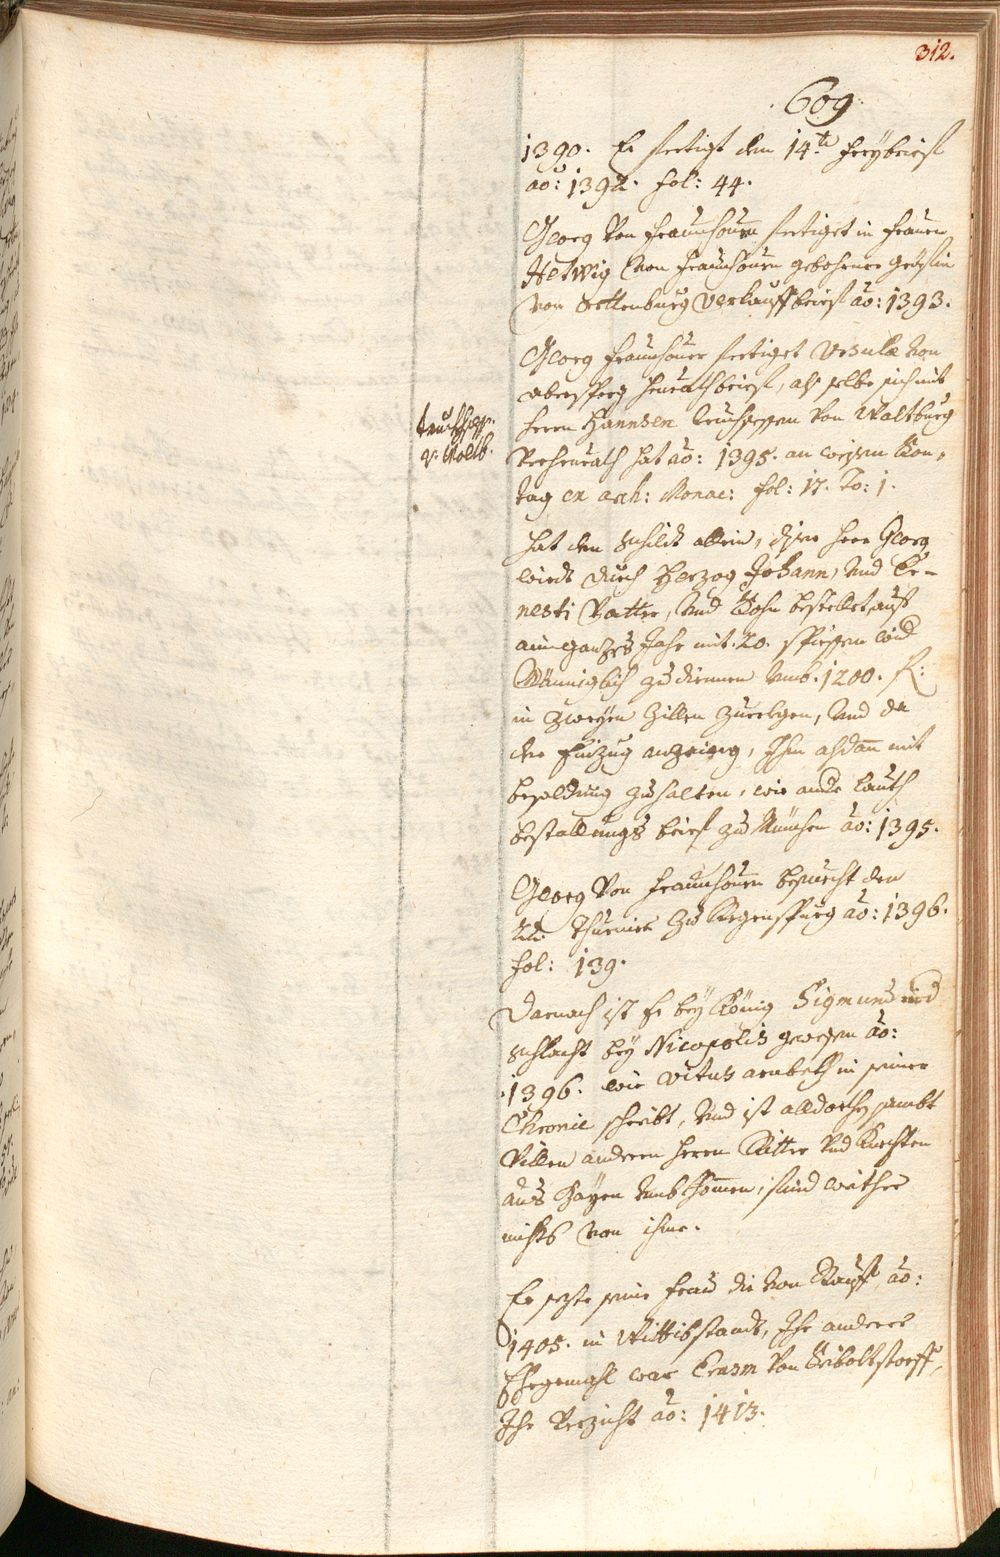 312.
609.
1390. Er fertigt den 14.te freybrief
ao: 1392. fol: 44.
Georg von Fraunhouen fertiget in Frauen
Hetwig von Fraunhouen gebohrner Gräfin
von Rottenburg verkauffbrief ao: 1393.
Georg Fraunhouer fertiget Ursulæ von
Abensperg Heurathbrief, als selbe sich mit
truchseßen
v. Waltb.
Herrn Hannsen Truchsessen von Waltburg
verheurath hat ao: 1395. an weissen Son-
tag ex arch: Monac: fol: 17. To: 1.
hat den Schildt allein, diser Herr Georg
wirdt durch Herzog Johann, und Er-
nesti Vatter, und Sohn bestellet auf
ain ganzes Jahr mit 20. Spiessen wid
Männiglich zu diennen umb. 1200. R:
in zweyen Zillen zuerlegen, und da
der Einzug anzeing, Ihm alsdan mit
besoldung zuhalten, wie ander lauth
bestallungs brief zu München ao: 1395.
Georg von Fraunhouen besuecht den
22t. Thurnier zu Regenspurg ao: 1396.
fol: 139.
Darnach ist Er bey König Sigmund in d
Schlacht bey Nicopolis gewesen ao:
1396. wie Vitus arnbekh in seiner
Chronic schreibt, und ist alldorthen sambt
villen anderen Herrn Ritter und Knechten
aus Bayrn umbkhommen, find weither
nichts von ihme.
Er sezte seine Frau die von Rauff ao:
1405. in Wittibstandt, Ihr anderer
Ehegemahl war Erasm von Seiboltstorff,
Ihr Verzicht ao: 1413.